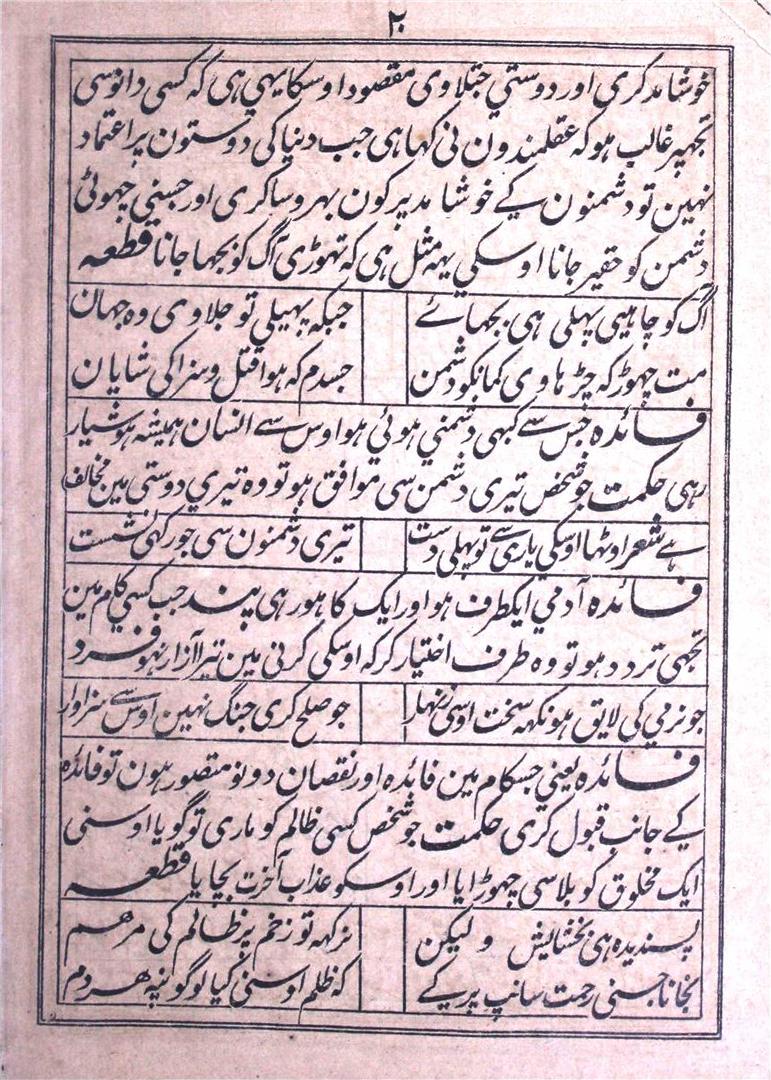 ۲۰
خوشامد کری اور دوستي جتلاوی مقصود اوسکا یہي ہی کہ کسی دانوسی
تجھپر غالب ہو کہ عقلمندون نی کہا ہی جب دنیا کی دوستون پر اعتماد
نہین تو دشمنون کے خوشامد پر کون بہروسا کری اور جسنی چھوٹی
دشمن کو حقیر جانا اوسکي یہہ مثل ہی کہ تہوڑی آگ کو بجھا جانا قطعہ
آگ کو چاہیی پہلی ہی بجھائے جبکہ پہیلي تو جلاوی وہ جہان
مت چھوڑ کہ چڑہاوی کمانکو دشمن جسدم کہ ہوا قتل و سزا کی شایان
فائدہ جس سے کبہی دشمني ہوئي ہو اوس سے انسان ہمیشہ ہوشیار
رہی حکمت جو شخص تیری دشمن سی موافق ہو تو وہ تیري دوستی مین مخالف
ہے شعر اوٹھا اوسکي یاری سے تو پہلی دست تیری دشمنون سی جو رکہی نشست
فائدہ آدمي ایکطرف ہو اور ایک کا ہو رہی پند جب کسي کام مین
تجھی تردد ہو تو وہ طرف اختیار کر کہ اوسکی کرنی مین تیرا آزار نہو فرد
جو نرمي کی لایق ہو نکہہ سخت اوسی زنہار جو صلح کری جنگ نہین اوس سے سزاوار
فائدہ یعني جسکام مین فائدہ اور نقصان دونو متصور ہون تو فائدہ
کے جانب قبول کری حکمت جو شخص کسی ظالم کو ماری تو گویا اوسنی
ایک مخلوق کو بلا سی چھوڑایا اور اوسکو عذاب آخرت بچایا قطعہ
پسندیدہ ہی بخشایش و لیکن نرکہہ تو زخم پر ظالم کی مرہم
بجانا جسنی رحمت سانپ پر کے کہ ظلم اوسنی کیا لوگونپہ ہردم